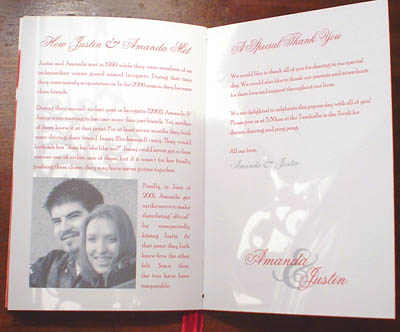 How Justin & Amanda Met
Justin and Amanda met in 1999 while they were members of an
independent winter guard named Incognito. During that time
they were merely acquaintances. In the 2000 season, they became
close friends.
During their second-to-last year in Incognito (2001), Amanda &
Justin were starting to become more than friends. Yet, neither
of them knew it at that point. For at least seven months they both
were driving their friend Jenny (Bridesmaid) crazy. They would
both ask her "does he/she like me?" Jenny could never get a clear
answer out of either one of them, but if it wasn't for her finally
pushing them closer, they may have never gotten together.
Finally, in June of
2001, Amanda got
up the nerve to make
their dating "official"
by unexpectedly
kissing Justin. At
that point they both
knew how the other
felt. Since then,
the two have been
inseparable.
A Special Thank You
We would like to thank all of you for sharing in our special
day. We would also like to thank our parents and attendants
for their love and support throughout our lives.
We are delighted to celebrate this joyous day with all of you!
Please join us at 5:30pm at the Turnhalle in the Tivoli for
dinner, dancing and ping pong.
All our love,
Amanda & Justin
Amanda
&
Justin